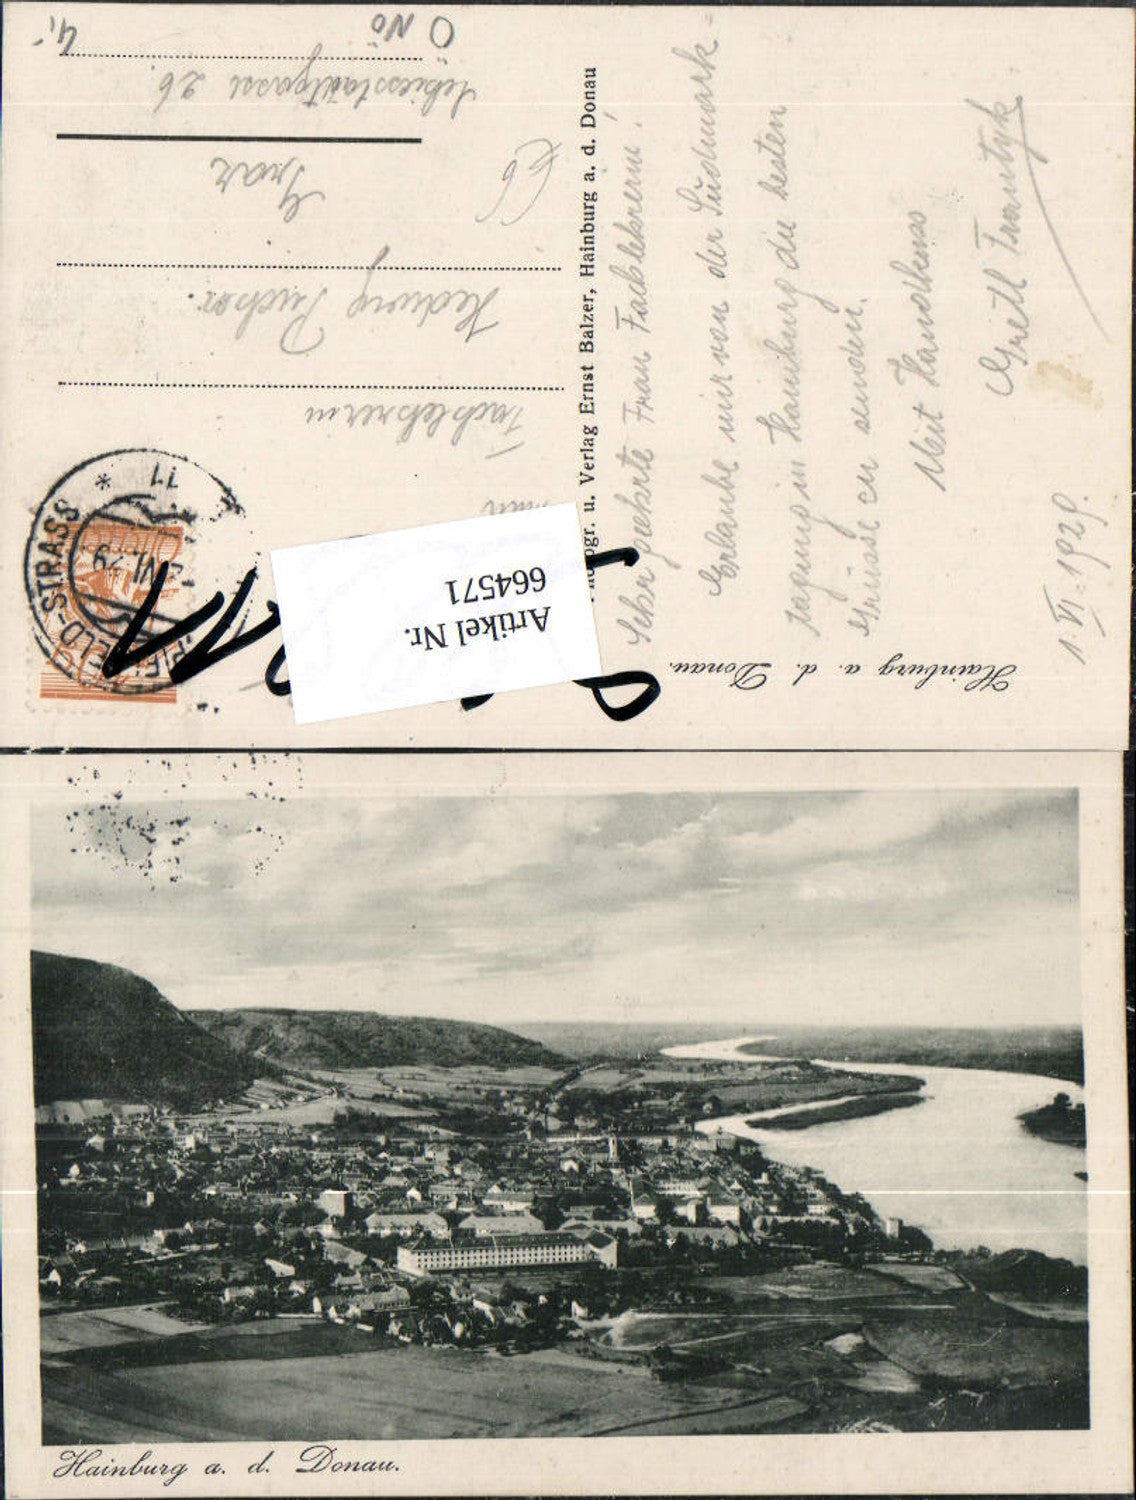 Hainburg a. d. Donau.
1. VI. 1929.
Sehr geehrte Frau Fachlehrerin!
Erlaube mir von der Südmark=
tagung in Hainburg die besten
Grüsse zu senden.
Mit Handkuss
Gretl
Photogr. u. Verlag Ernst Balzer, Hainburg a. d. Donau
Artikel Nr.
664571
PIELFELD-STRASS
VI. 29
11
*
Fachlehrerin
Hedwig Pucher.
Graz
26
Ö NÖ
4,-
Hainburg a. d. Donau.